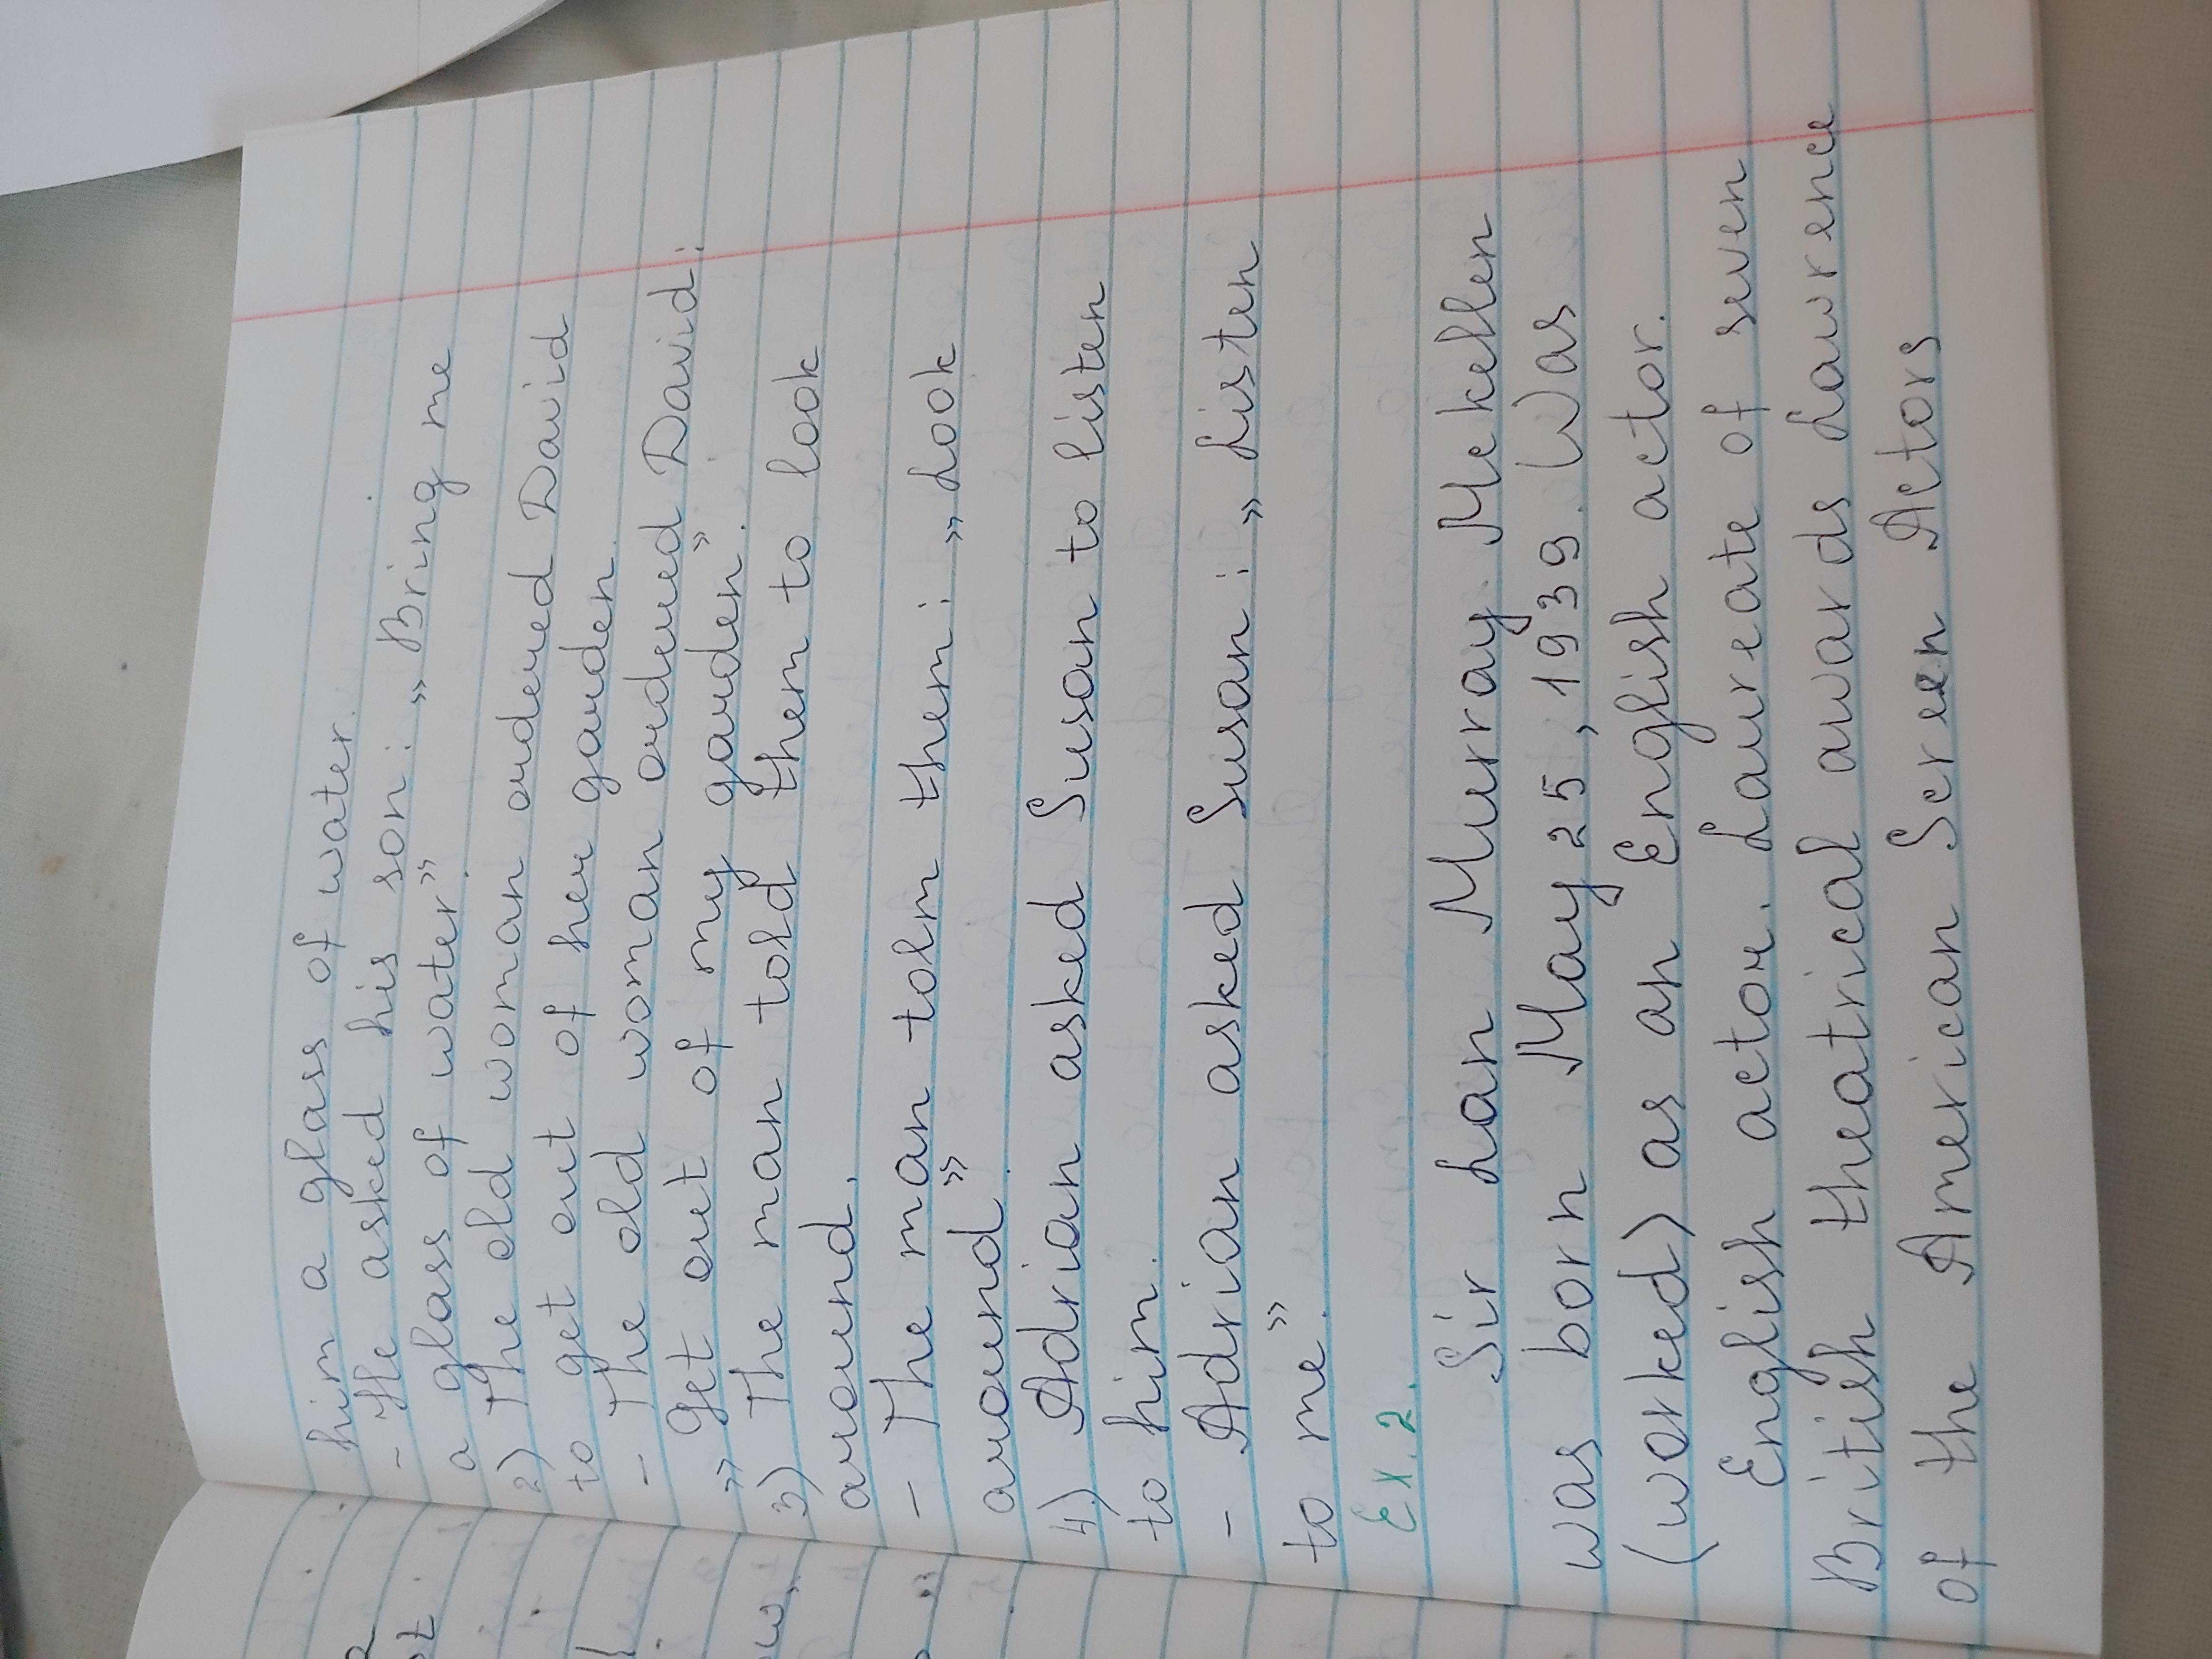 him a glass of water.
- He asked his son: „Bring me
a glass of water”.
2) The old woman ordered David
to get out of her garden.
- The old woman ordered David:
„Get out of my garden”.
3) The man told them to look
around.
- The man tolm them: „Look
around”.
4) Adrian asked Suson to listen
to him.
- Adrian asked Susan: „Listen
to me”.
Ex. 2.
Sir Lan Murray Mekellen
was born May 25, 1939. Was
(worked) as an English actor.
English actor. Laureate of seven
British theatrical awards Lawrence
of the American Screen Actors